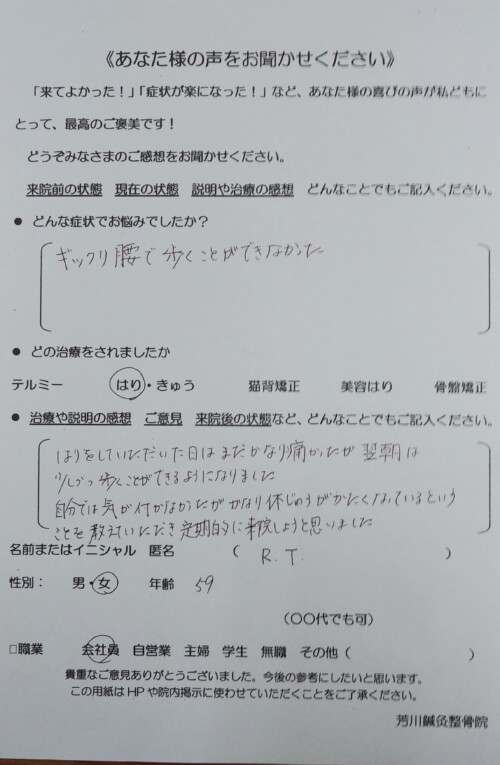 《あなた様の声をお聞かせください》
「来てよかった！」「症状が楽になった！」など、あなた様の喜びの声が私どもに
とって、最高のご褒美です！
どうぞみなさまのご感想をお聞かせください。
来院前の状態　現在の状態　説明や治療の感想　どんなことでもご記入ください。
● どんな症状でお悩みでしたか？
ギックリ腰で歩くことができなかった
● どの治療をされましたか
テルミー　はり・きゅう　猫背矯正　美容はり　骨盤矯正
● 治療や説明の感想　ご意見　来院後の状態など、どんなことでもご記入ください。
はりをしていただいた日はまだかなり痛かったが翌朝は
少しづつ歩くことができるようになりました
自分では気が付かなかったがかなり体じゅうがかたくなっているという
ことを教えていただき定期的に来院しようと思いました
名前またはイニシャル　匿名　（　R.T.　）
性別：　男・女　年齢　59
（〇〇代でも可）
□職業　会社員　自営業　主婦　学生　無職　その他（　）
貴重なご意見ありがとうございました。今後の参考にしたいと思います。
この用紙はHPや院内掲示に使わせていただくことをご了承ください。
芳川鍼灸整骨院